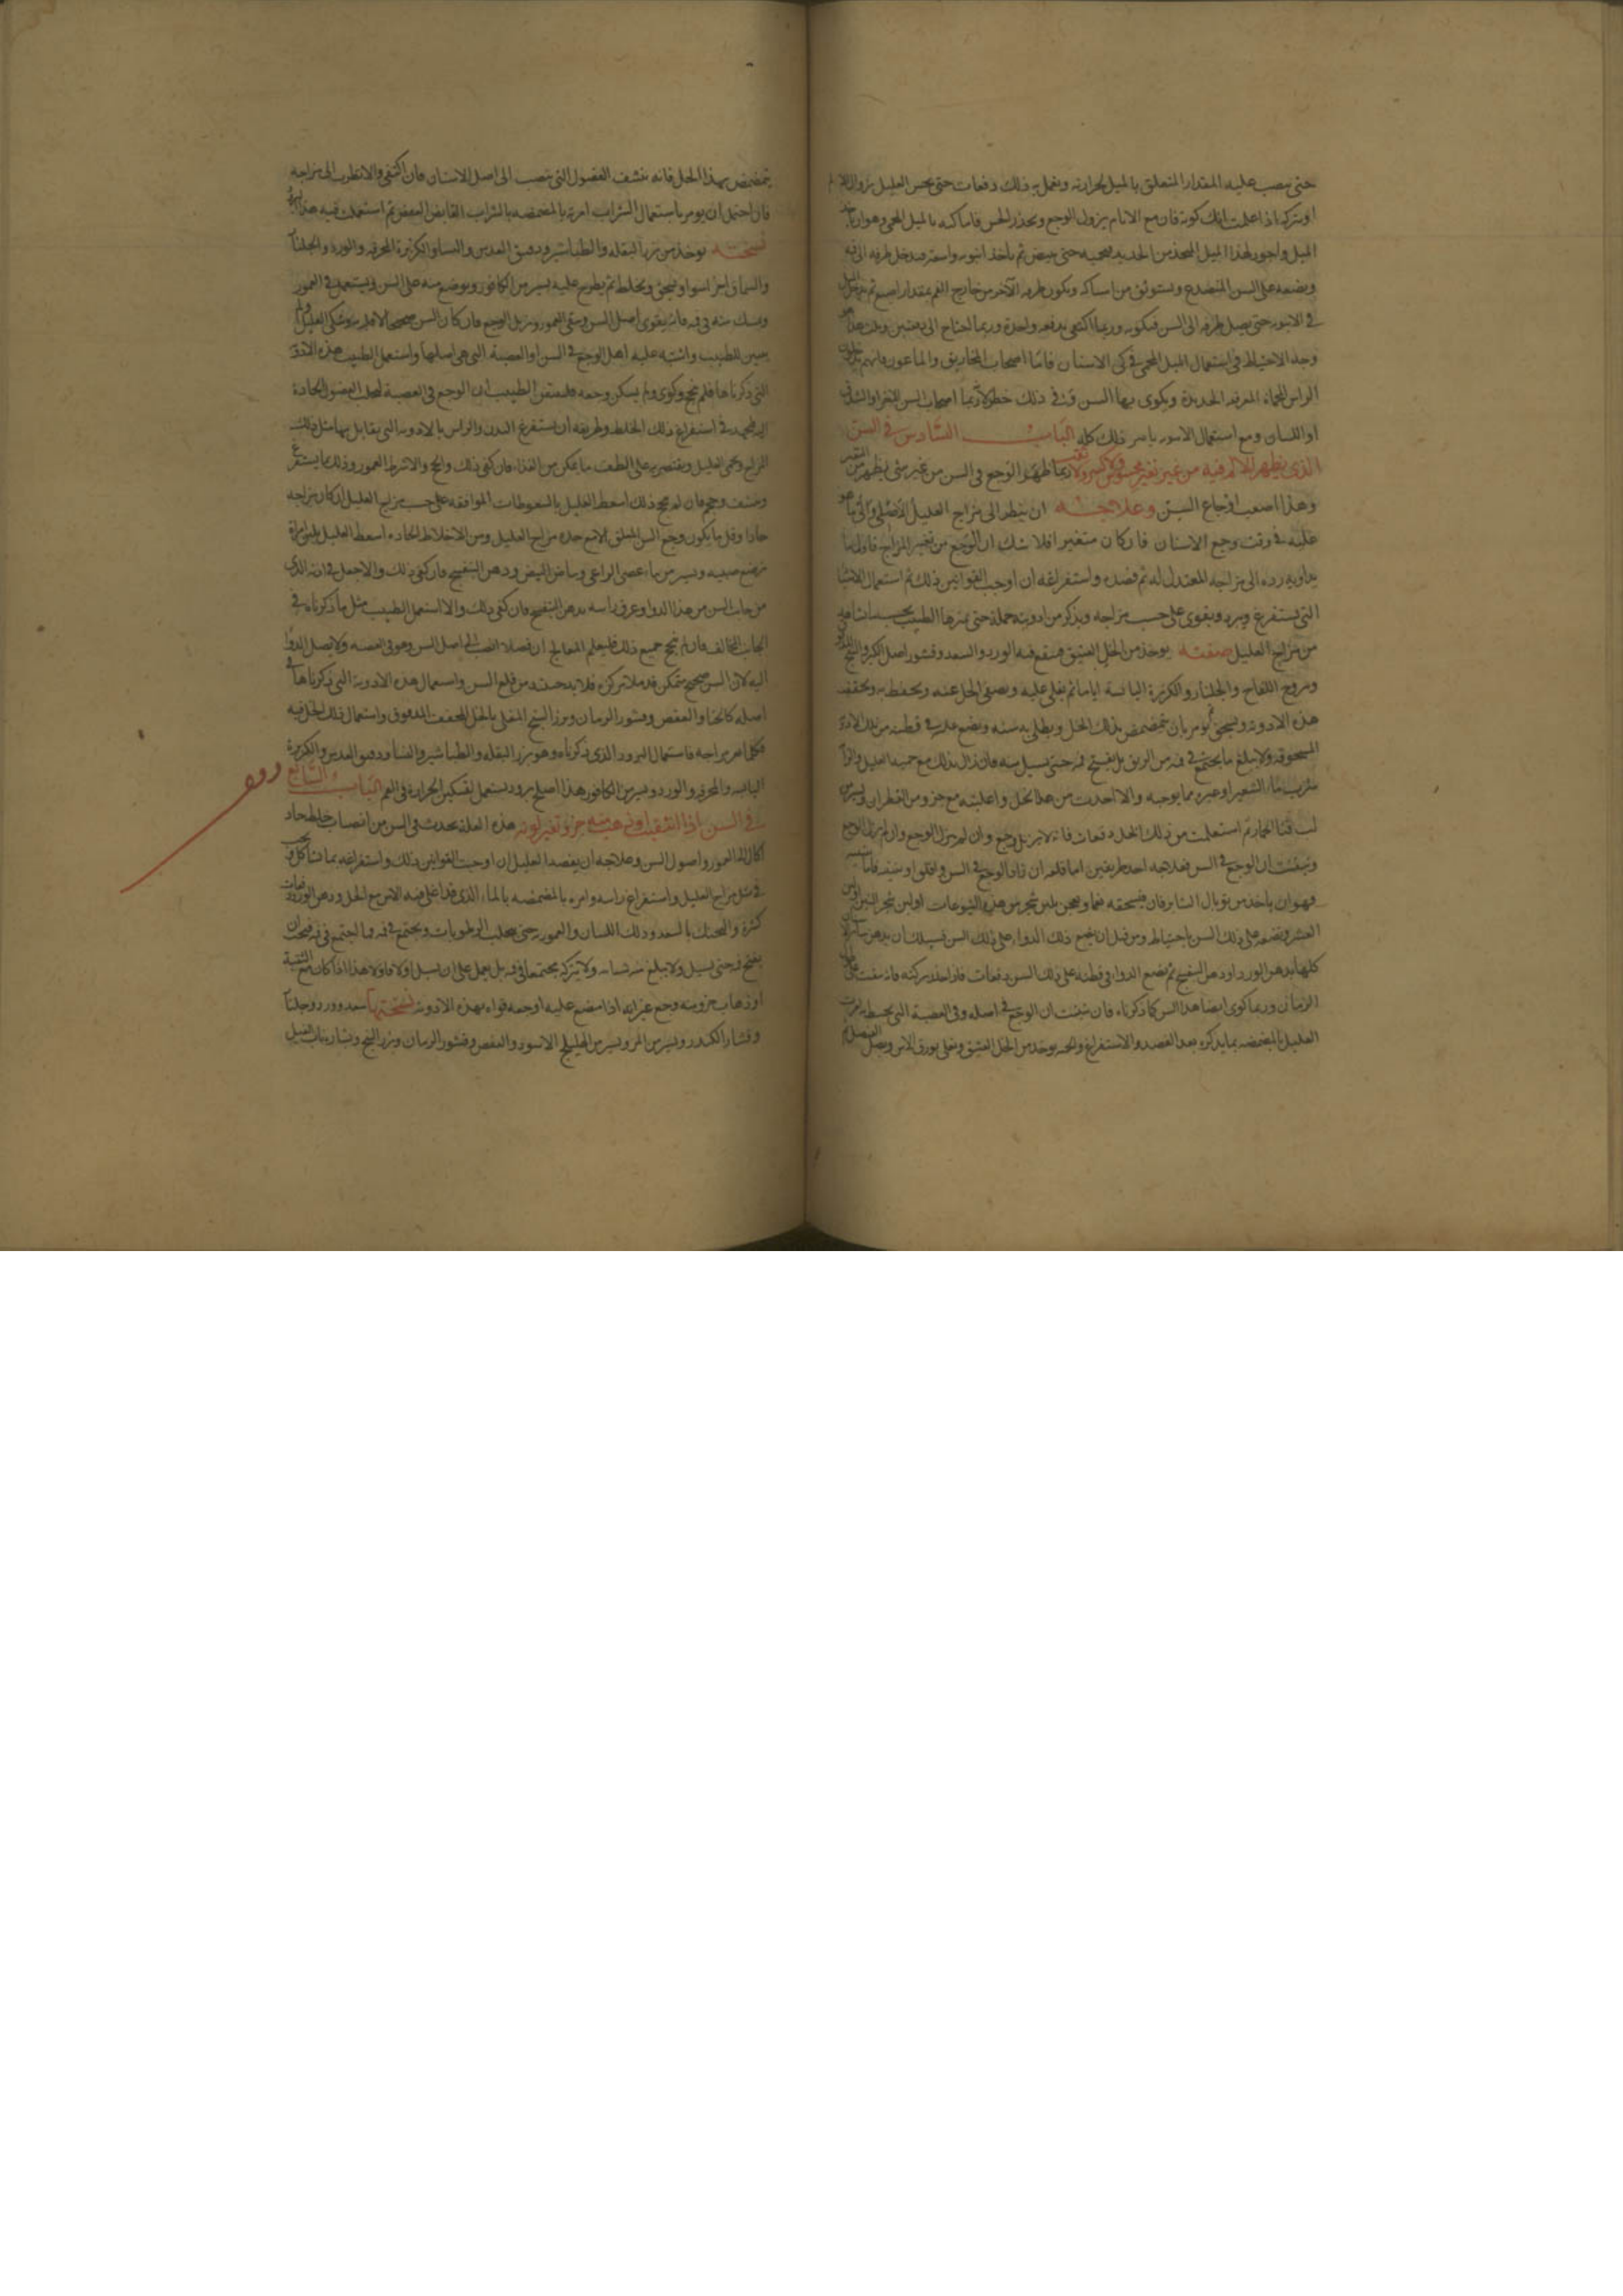 حتى يصب عليه المقدار المتعلق بالميل بحرارته ويعمل به ذلك دفعات حتى يحس العليل بزوال الالم
او يتركه اذا علمت انك كويته فان مع الايام يزول الوجع ويخدر الحس فاما كيه بالميل المحمى فهو ان ياخذ
الميل واجود لهذا الميل المتخذ من الحديد فيحميه حتى يبيض ثم ياخذ انبوبه واسعة فيدخل طرفه الى فيه
ويضعه على السن المتصدع ويستوثق من امساكه ويكون طرفه الاخر من خارج الفم بمقدار اصبع ثم يدخل الميل
في الانبوبه حتى يصل طرفه الى السن فيكويه وربما اكتفى بدفعه واحدة وربما احتاج الى دفعتين وثلث هذا هو
وجه الاحتياط في استعمال الميل المحمى في كي الاسنان فاما اصحاب المخاريق والماعون فانهم
الراس المحماة المعرفه الحديدة ويكوى بها السن وفي ذلك خطر لانه ربما اصحاب السن الثغر او الشدق
او اللسان ومع استعمال الانبوبه يامن ذلك كله الباب السادس في السن
الذي يظهر الالم فيه من غير تغير محسوس ولا كسر ولا ثقب ربما ظهر الوجع في السن من غير شي يظهر من التغير
وهذا اصعب اوجاع السن وعلاجه ان ينظر الى مزاج العليل الاصلي والى ما هو
عليه في وقت وجع الاسنان فان كان متغير افلا شك ان الوجع من تغير المزاج فاول ما
يداويه رده الى مزاجه المعتدل له ثم فصده واستفراغه ان اوجب القوانين ذلك ثم استعمال الاشيا
التي تستفرغ وتبرد ويقوى على حسب مزاجه ويذكر من ادويته جملة حتى يميزها الطبيب بحسب ما شاهد
من مزاج العليل صفته يوخذ من الخل العتيق فينقع فيه الورد والسعد وقشور اصل الكبر والبنج
ويبروج اللفاح والجلنار والكزبرة اليابسة اياما ثم يغلى عليه ويصفى الخل عنه ويحتفظ به ويجفف
هذه الادويه ويسحق ثم يومر بان يتمضمض بذلك الخل ويطلى به سنه ويضع عليه في قطنه من تلك الادوية
المسحوقه ولا يبلع ما يجتمع في فمه من الريق بل يفتح فمه حتى يسيل منه فان زال بذلك مع حمية العليل والزام
شرب ماء الشعير او غيره مما يوجبه والا اخذت من هذا الخل واغليته مع جزو من القطران ويسير من
لب قثا الحمار ثم استعملت من ذلك الخل دفعات فانه لا يزيل وجع وان لم يزل الوجع
وتيقنت ان الوجع في السن فعلاجه احد طريقين اما قلعه ان زاد الوجع في السن
فهو ان ياخذ من توبال الشابرقان فيسحقه نعما ويعجن بلبن شجر من هذه اليتوعات او لبن شجر التين
العشر ويضعه على ذلك السن باحتياط ومن قبل ان يضع ذلك الدواء على ذلك السن فسبيلك ان يدهن
كلها بدهن الورد او دهن البنفسج ثم يضع الدوا في قطنه على ذلك السن دفعات
الزمان وربما كوى ايضا هذا السن كما ذكرناه فان تيقنت ان الوجع في اصله وفي العصبة التي
العليل بالمضمضه بما يذكره بعد الفصد والاستفراغ والحميه يوخذ من الخل العتيق ويغلى بورق الاس
يتمضمض بهذا الخل فانه ينشف الفضول التي تنصب الى اصل الاسنان فان اكتفى والا نظرت الى مزاجه
فان احتمل ان يومر باستعمال الشراب امرته بالمضمضه بالشراب القابض العفص ثم استعملت فيه هذا
نسخته يوخذ من بزر البقله والطباشير ودقيق العدس والنشا والكزبرة المحرقه والورد والجلنار
والسماق اجزاء سوا ويسحق ويخلط ثم يطرح عليه يسير من الكافور ويوضع منه على السن ويستعمل في العمور
ويمسك منه في فمه فانه يقوى اصل السن وينقي العمور ويزيل الوجع فان كان السن صحيحا
يبين للطبيب واشتبه عليه اهل الوجع في السن او العصبة التي هي اصلها واستعمل الطبيب هذه الادوية
التي ذكرناها فلم ينجع وكوى ولم يسكن وجعه فليتيقن الطبيب ان الوجع في العصبة لجلب الفضول الحادة
اليه فيجتهد في استفراغ ذلك الخلط وطريقه ان يستفرغ البدن والراس بالادويه التي يقابل بها مثل ذلك
المزاج ويحمى العليل ويقتصر به على الطف ما يمكن من الغذاء فان كفى ذلك والا شرط العمور وذلك بما يستفرغ
وينشف وجع فان لم ينجع ذلك اسعط العليل بالسعوطات الموافقه على حسب مزاج العليل ان كان مزاجه
حادا وقل ما يكون وجع السن المقلق الا مع حدة مزاج العليل ومن الاخلاط الحاده اسعط العليل بلبن امراة
ترضع صبيه ويسير من ماء عصى الراعي وبياض البيض ودهن البنفسج فان كفى ذلك والا جعل في اذنه الذي
من جانب السن من هذا الدوا وعرق راسه بدهن البنفسج فان كفى ذلك والا استعمل الطبيب مثل ما ذكرناه في
الجانب المخالف فان لم ينجع جميع ذلك فليعلم المعالج ان فضلا انصب الى اصل السن وهو في العصبه ولا يصل الدوا
اليه لان السن صحيح متمكن في مركزه فلا بد حينئذ من قلع السن واستعمال هذه الادوية التي ذكرناها في
اصله كالحنا والعفص وقشور الرمان وبزر البنج المغلى بالخل المجفف المدقوق واستعمال ذلك الخل فيه
فكلما مر مزاجه فاستعمال البرود الذي ذكرناه وهو بزر البقله والطباشير والنشا ودقيق العدس والكزبرة
اليابسه والمحرقه والورد ويسير من الكافور هذا اصلح برود يستعمل لتسكين الحرارة في الفم الباب السابع
في السن اذا انثقب او ذهب منه جزو وتغير لونه هذه العلة يحدث في السن من انصباب خلط حاد
اكال الى العمور واصول السن وعلاجه ان يفصد العليل ان اوجبت القوانين ذلك واستفراغه بما شاكل
في مثل مزاج العليل واستفراغ راسه وامره بالمضمضه بالماء الذي قد اغلى فيه الاس مع الخل ودهن الورد دفعات
كثيرة والتحنك بالسعد ودلك اللسان والعمور حتى يتحلب الرطوبات ويجتمع في فمه وما اجتمع في فمه فيجب ان
يفتح فمه حتى يسيل ولا يبلع منه شيا ولا يتركه مجتمعا في فمه بل يعمل على ان يسيل اولا فاولا هذا اذا كان مع الثقبة
او ذهاب جزو منه وجع غير انه اذا مضغ عليه اوجعه فدواه بهذه الادوية نسختها سعد وورد وجلنار
وقشار الكندر ويسير من المر ويسير من الهليلج الاسود والعفص وقشور الرمان وبزر البنج ونشارة ناب الفيل